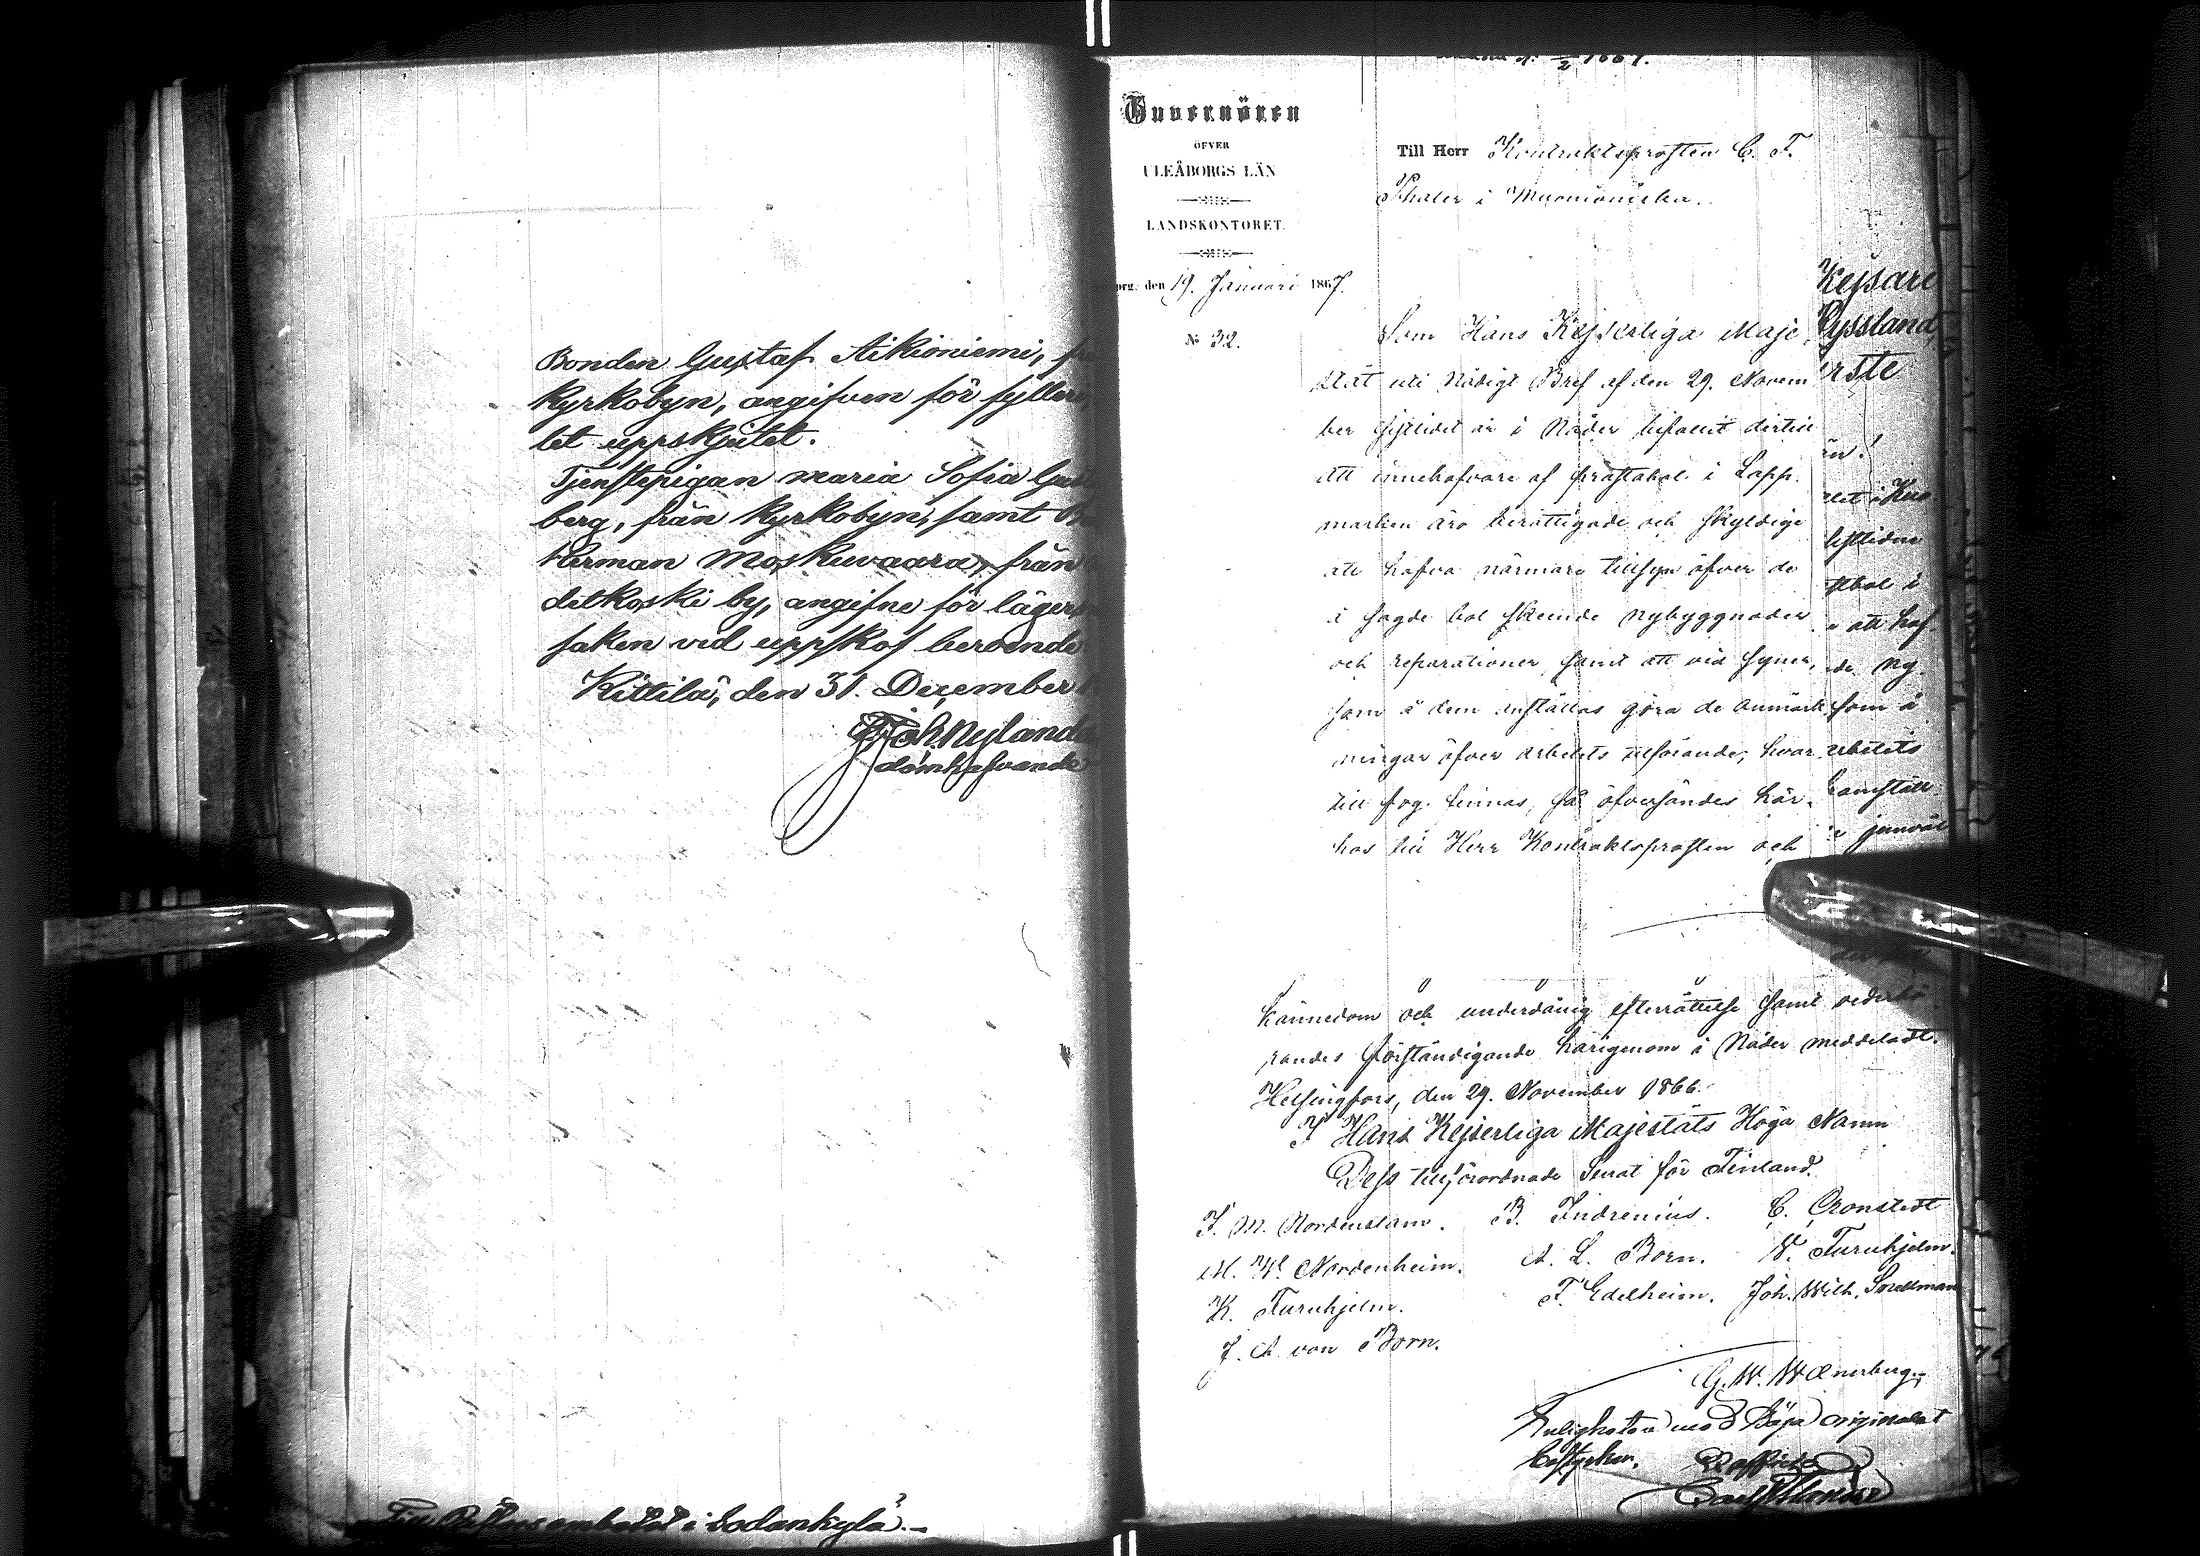 Bonden Gustaf Aikioniemi,
Kyrkobyn, angifven för fylleri
let uppskjutet.
Tjenstepigan Maria Sofia
berg, från Kyrkobyn, samt
Herman Moskuvaara, från
delkoski by, angifne för läger
saken vid uppskof beroende
Kittilä, den 31. December
Joh. Nyland
domhafvande
Till Pastorsembetet i Sodankylä.
1867.
Guvernören
ÖFVER
ULEÅBORGS LÄN
LANDSKONTORET.
org. den 19. Januari 1867.
№ 32.
Till Herr Kontraktsprosten C. F.
Thaler i Muonioniska.
Som Hans Kejserliga Maje
stät uti Nådigt Bref af den 29. Novem
ber sistlidet år i Nåder
att innehafvare af prestabol i Lapp
marken äro berättigade och skyldige
att hafva närmare tillsyn öfver de
i sagde bol skeende nybyggnader
och reparationer samt att vid syner,
som å dem anställas göra de anmärk
ningar öfver arbetets utförande, hvar
till fog finnas, så öfversändes här
hos till Herr Kontraktsprosten och
Kejsare
Ryssland,
rste
än!
sistliden
stbol i
att haf
de ny
som å
arbetets
framställ
kännedom och underdånig efterrättelse samt vederbö
randes förständigande härigenom i Nåder meddeladt.
Helsingfors, den 29. November 1866.
I Hans Kejserliga Majestäts Höga Namn
Dess tillförordnade Senat för Finland.
J. M. Nordenstam. B. Indrenius. C. Cronstedt
M. W. Nordenheim. A. L. Born. V. Furuhjelm.
K. Furuhjelm. F. Edelheim. Joh. Wilh. Snellman
J. A. von Born.
G. W. Wænerberg.
Enligheten med Höga originalet
bestyrker,